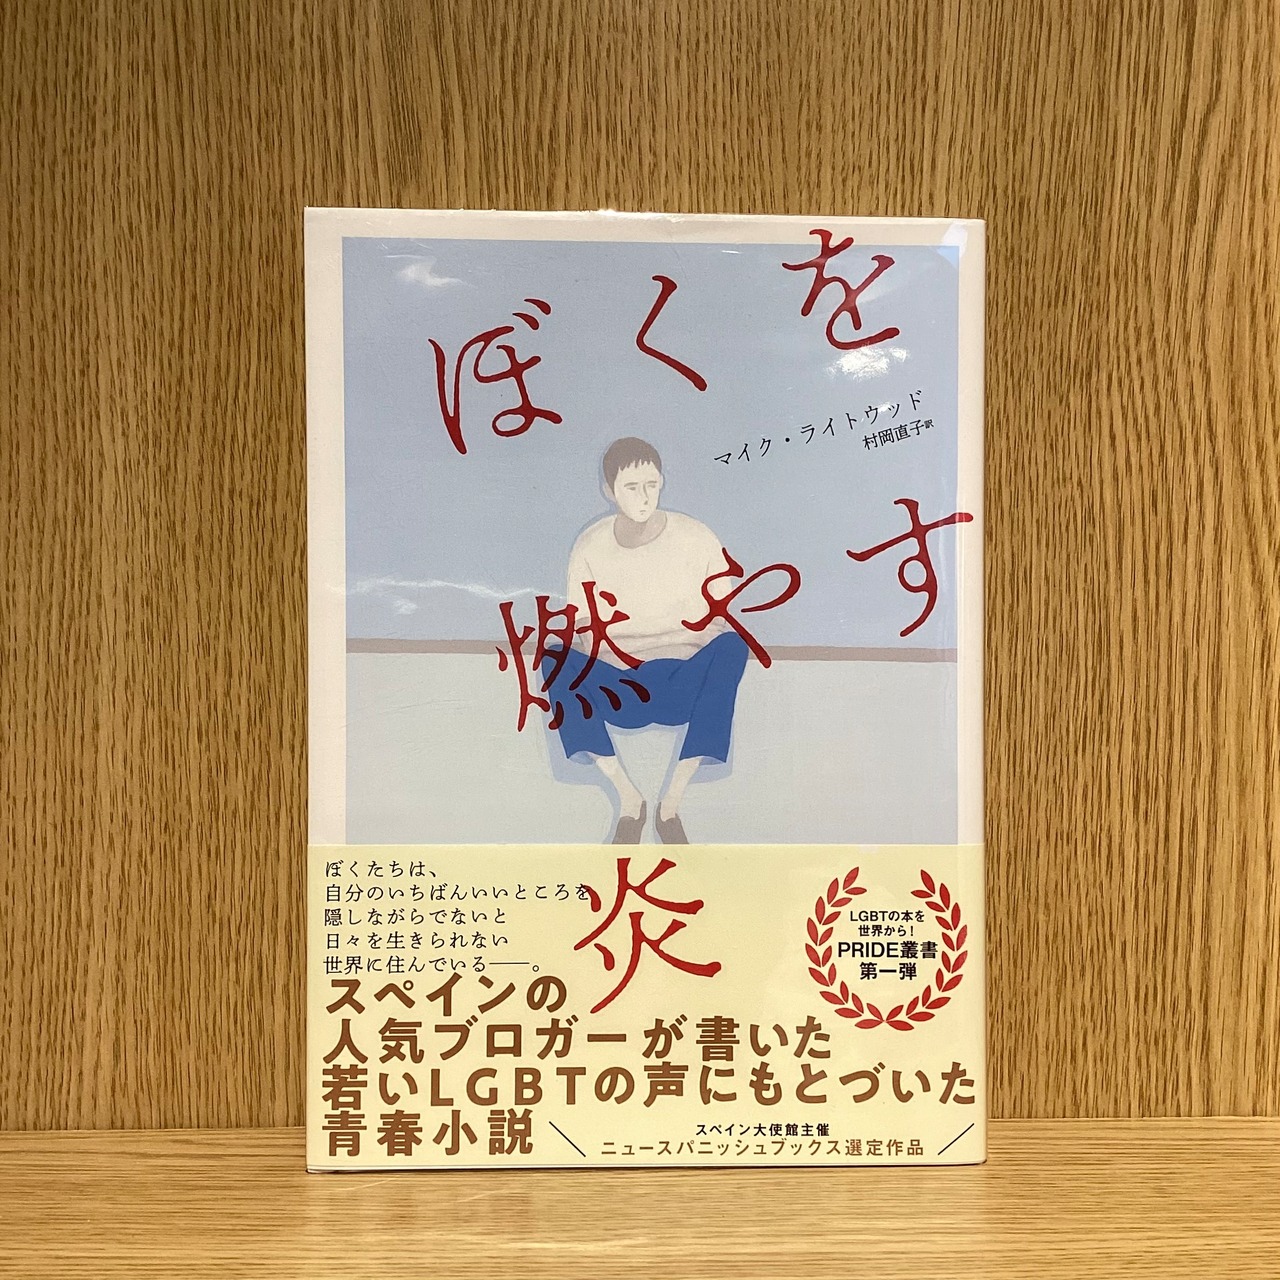 ぼくを
燃やす
炎
マイク・ライトウッド
村岡直子訳
ぼくたちは、
自分のいちばんいいところを
隠しながらでないと
日々を生きられない
世界に住んでいる──。
スペインの
人気ブロガーが書いた
若いLGBTの声にもとづいた
青春小説
LGBTの本を
世界から!
PRIDE叢書
第一弾
スペイン大使館主催
ニュースパニッシュブックス選定作品